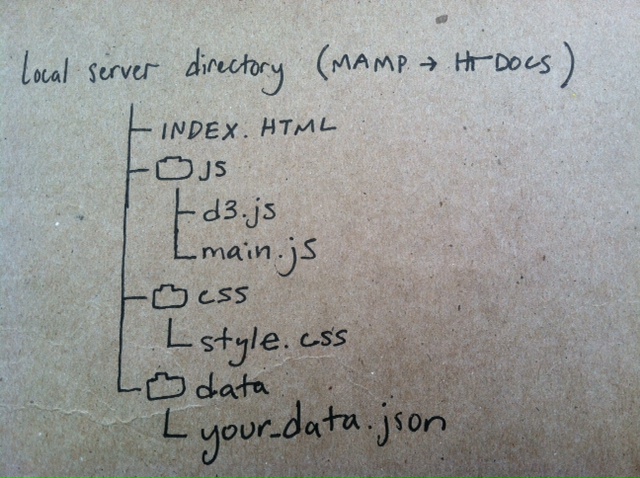 local server directory (MAMP → HTDOCS)
INDEX.HTML
js
d3.js
main.js
css
style.css
data
your_data.json